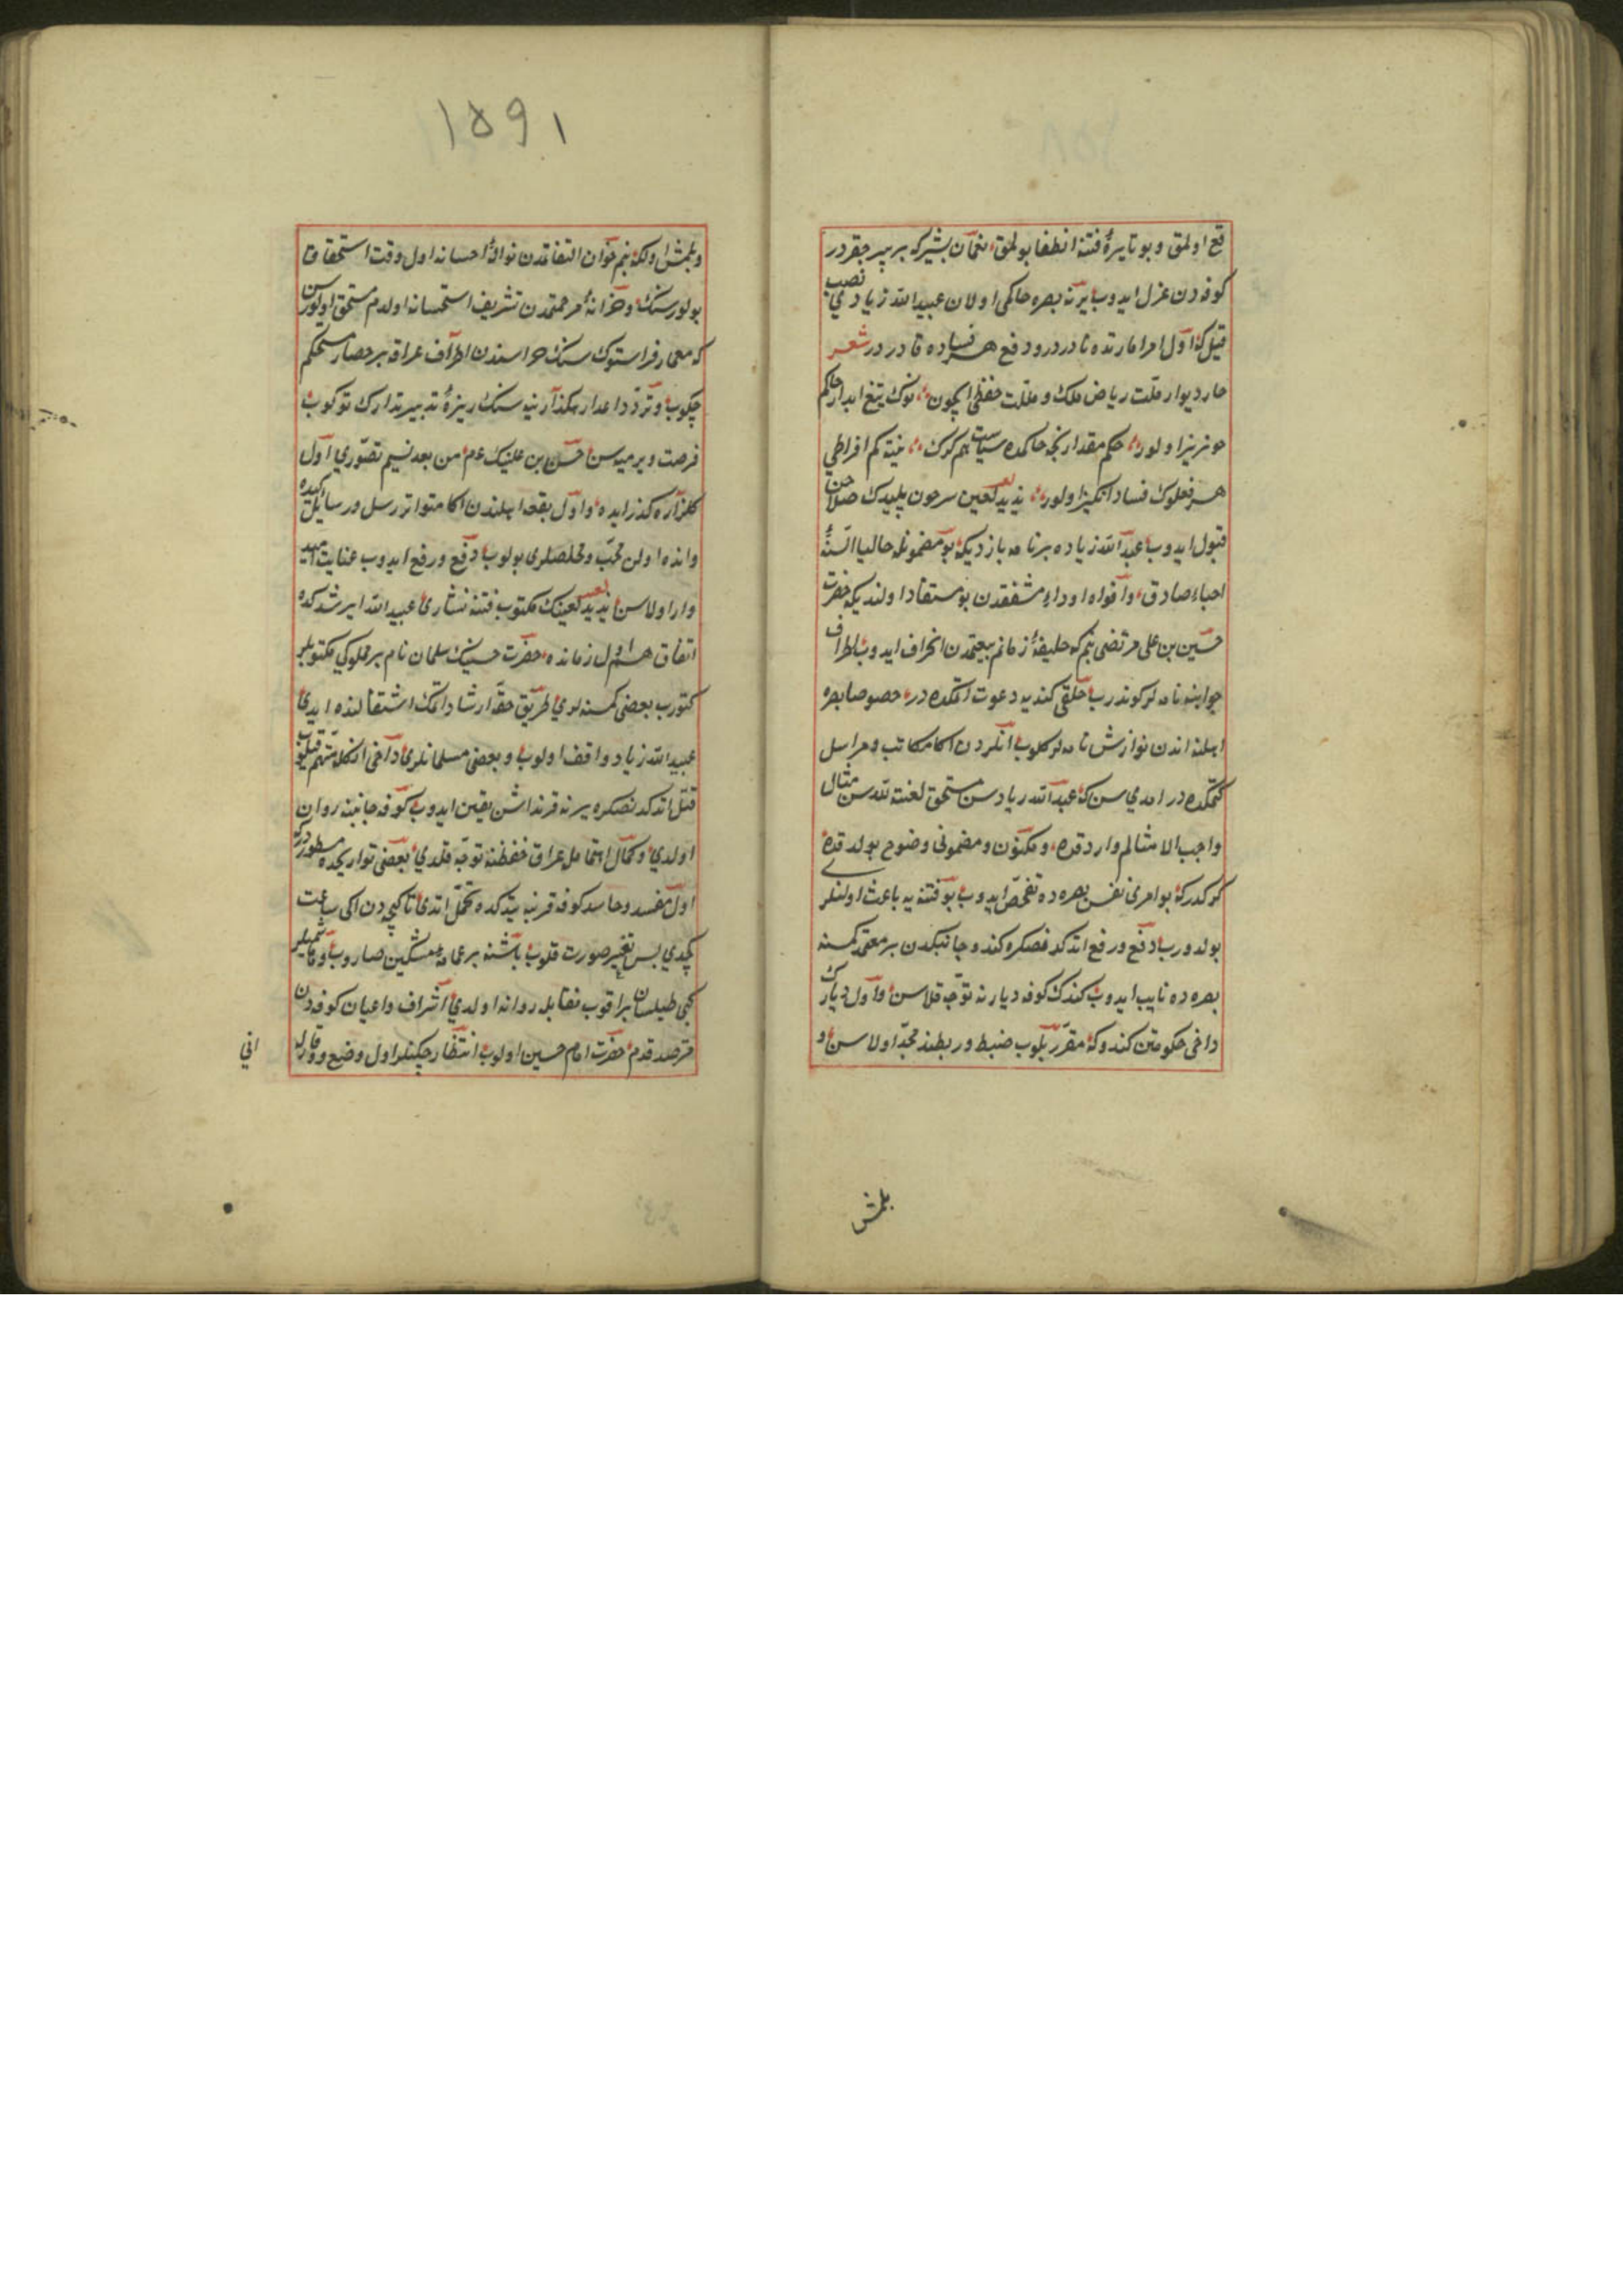 قع اولمق و بو نایرهٔ فتنه انطفا بولمق نعمان بشیر که بر پیر جقردر
کوفه دن عزل ایدوب یرنه بصره حاکمی اولان عبید الله زیادی نصب
قیل که اول امر امارتده نادر در و دفع هر فساده قادر در شعر
چار دیوار ریاض ملک و ملت حفظی ایچون نوک تیغ ابدار حاکم
خونریز اولور حکم مقدارنجه حاکمده سیاست هم کرک نیته کم افراطی
هر فعلوک فساد انکیز اولور یزید لعین سرحون پلیدک صلاحن
قبول ایدوب عبد الله زیاده بر نامه یازدیکه بو مضمونله حالیا السنهٔ
احباء صادق و افواه اوداء مشفقدن بو مستفاد اولندیکه حضرت
حسین بن علی مرتضی بنم که خلیفهٔ زمانم بیعتمدن انحراف ایدوب اطراف
جوانبه نامه لر کوندرب خلقی کندیه دعوت اتمکده در خصوصا بصره
اهلنه اندن نوازش نامه لر کلوب انلردن اکا مکاتب و مراسل
کتمکده در امدی سن که عبد الله زیادسن مستحق لعنة الله سن مثال
واجب الامتثالم وارد قده و مکنون و مضمونی وضوح بولدقده
کرکدر که بو امری نفس بصره ده تفحص ایدوب بو فتنه یه باعث اولنلر
بولدورب دفع و رفع اتدکدنصکره کندو جانبکدن بر معتمد کمسنه
بصره ده نایب ایدوب کندک کوفه دیارنه توجه قلاسن و اول دیارک
داخی حکومتن کندوکه مقرر بلوب ضبط و ربطنه مجد اولاسن و
بلمش
۱۵۹۱
و بلمش اول که بنم خوان التفاتمدن نوالهٔ احسانه اول وقت استحقاق
بولورسنک و خزانهٔ مرحمتمدن تشریف استحسانه اولدم مستحق اولورسن
که معمار فراستوک سنک اطراف عراقه بر حصار مستحکم
چکوب و تردد اعدا رهکذارینه سنک ریزهٔ تدبیر تدارک توکوب
فرصت ویرمیه سن حسین بن علینک عم من بعد نسیم تصوری اول
کلزاره کذر ایده و اول بقعه اهلندن اکا متواتر رسل و رسایل کیده
و انده اولن محب و مخلصلری بولوب دفع و رفع ایدوب عنایت
وار اولاسن یزید لعینک مکتوب فتنه نثاری عبید الله ایرشدکده
اتفاق هم اول زمانده حضرت حسینک سلمان نام بر مملوکی مکتوبلر
کتورب بعضی کمسنه لری طریق حقه ارشاد اتمک اشتغالنده ایدی
عبید الله زیاد واقف اولوب و بعضی مسلمانلری داخی انکله متهم قیلوب
قتل اتدکدنصکره یرنه قرنداشن یقین ایدوب کوفه جانبنه روان
اولدی و کمال اهتمامله عراق حفظنه توجه قلدی بعضی تواریخده مسطوردرکه
اول مفسد و حاسد کوفه قربنه یتدکده تحمل اتدی تا کیجه دن ایکی ساعت
کچدی پس تغیر صورت قلوب باشنه بر عمامهٔ مشکین صاروب و
کبی طیلسان براقوب نقابله روانه اولدی اشراف و اعیان کوفه دن
مترصد قدم حضرت امام حسین اولوب انتظار چکنلر اول وضع و وقارله
انی